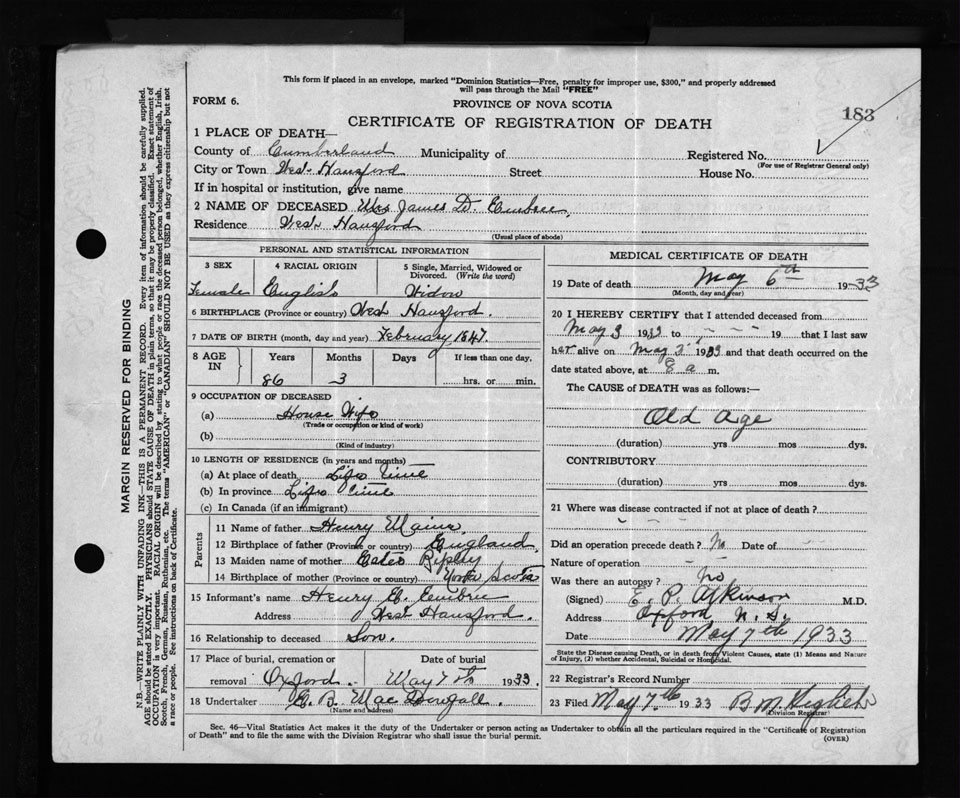 This form if placed in an envelope, marked "Dominion Statistics—Free, penalty for improper use, $300," and properly addressed
will pass through the Mail "FREE"
FORM 6.
PROVINCE OF NOVA SCOTIA
183
CERTIFICATE OF REGISTRATION OF DEATH
1 PLACE OF DEATH—
County of Cumberland Municipality of Registered No.
(For use of Registrar General only)
City or Town West Hansford Street House No.
If in hospital or institution, give name
2 NAME OF DECEASED Mrs James D. Embree
Residence West Hansford
(Usual place of abode)
PERSONAL AND STATISTICAL INFORMATION
3 SEX 4 RACIAL ORIGIN 5 Single, Married, Widowed or Divorced. (Write the word)
Female English Widow
6 BIRTHPLACE (Province or country) West Hansford.
7 DATE OF BIRTH (month, day and year) February 1847.
8 AGE IN Years Months Days If less than one day,
86 3 hrs. or min.
9 OCCUPATION OF DECEASED
(a) House Wife
(Trade or occupation or kind of work)
(b)
(Kind of industry)
10 LENGTH OF RESIDENCE (in years and months)
(a) At place of death Life time
(b) In province Life time
(c) In Canada (if an immigrant)
Parents
11 Name of father Henry
12 Birthplace of father (Province or country) England
13 Maiden name of mother Ripley
14 Birthplace of mother (Province or country) Nova Scotia
15 Informant's name Henry Embree
Address West Hansford.
16 Relationship to deceased Son.
17 Place of burial, cremation or removal Oxford. Date of burial May 7th 1933.
18 Undertaker MacDougall.
(Name and address)
MEDICAL CERTIFICATE OF DEATH
19 Date of death May 6th 1933
(Month, day and year)
20 I HEREBY CERTIFY that I attended deceased from
May 3 1933 to - - - 19 that I last saw
her alive on May 3 1933 and that death occurred on the
date stated above, at 8 a m.
The CAUSE of DEATH was as follows:
Old Age
(duration) yrs mos dys.
CONTRIBUTORY
(duration) yrs mos dys.
21 Where was disease contracted if not at place of death?
- - -
Did an operation precede death? No Date of - -
Nature of operation - -
Was there an autopsy? No
(Signed) E. P. Atkinson M.D.
Address Oxford N. S.
Date May 7th 1933
State the Disease causing Death, or in death from Violent Causes, state (1) Means and Nature
of Injury, (2) whether Accidental, Suicidal or Homicidal.
22 Registrar's Record Number
23 Filed May 7th 1933 B. M.
(Division Registrar)
Sec. 46—Vital Statistics Act makes it the duty of the Undertaker or person acting as Undertaker to obtain all the particulars required in the "Certificate of Registration
of Death" and to file same with the Division Registrar who shall issue the burial permit.
(OVER)
MARGIN RESERVED FOR BINDING
N.B.—WRITE PLAINLY WITH UNFADING INK—THIS IS A PERMANENT RECORD. Every item of information should be carefully supplied.
AGE should be stated EXACTLY. PHYSICIANS should STATE CAUSE OF DEATH in plain terms, so that it may be properly classified. Exact statement of
OCCUPATION is very important. RACIAL ORIGIN will be described by stating to what people or race the deceased person belonged, whether English, Irish,
Scotch, French, German, Russian, Ruthenian, etc. The terms "AMERICAN" or "CANADIAN" SHOULD NOT BE USED as they express citizenship but not
a race or people. See instructions on back of Certificate.